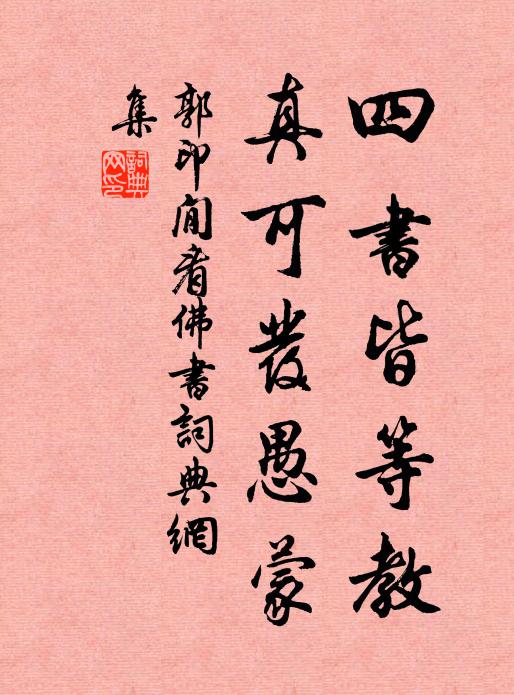 四書皆等教
真可發愚蒙
郭印閒看佛書詞典網
集
詞典網印